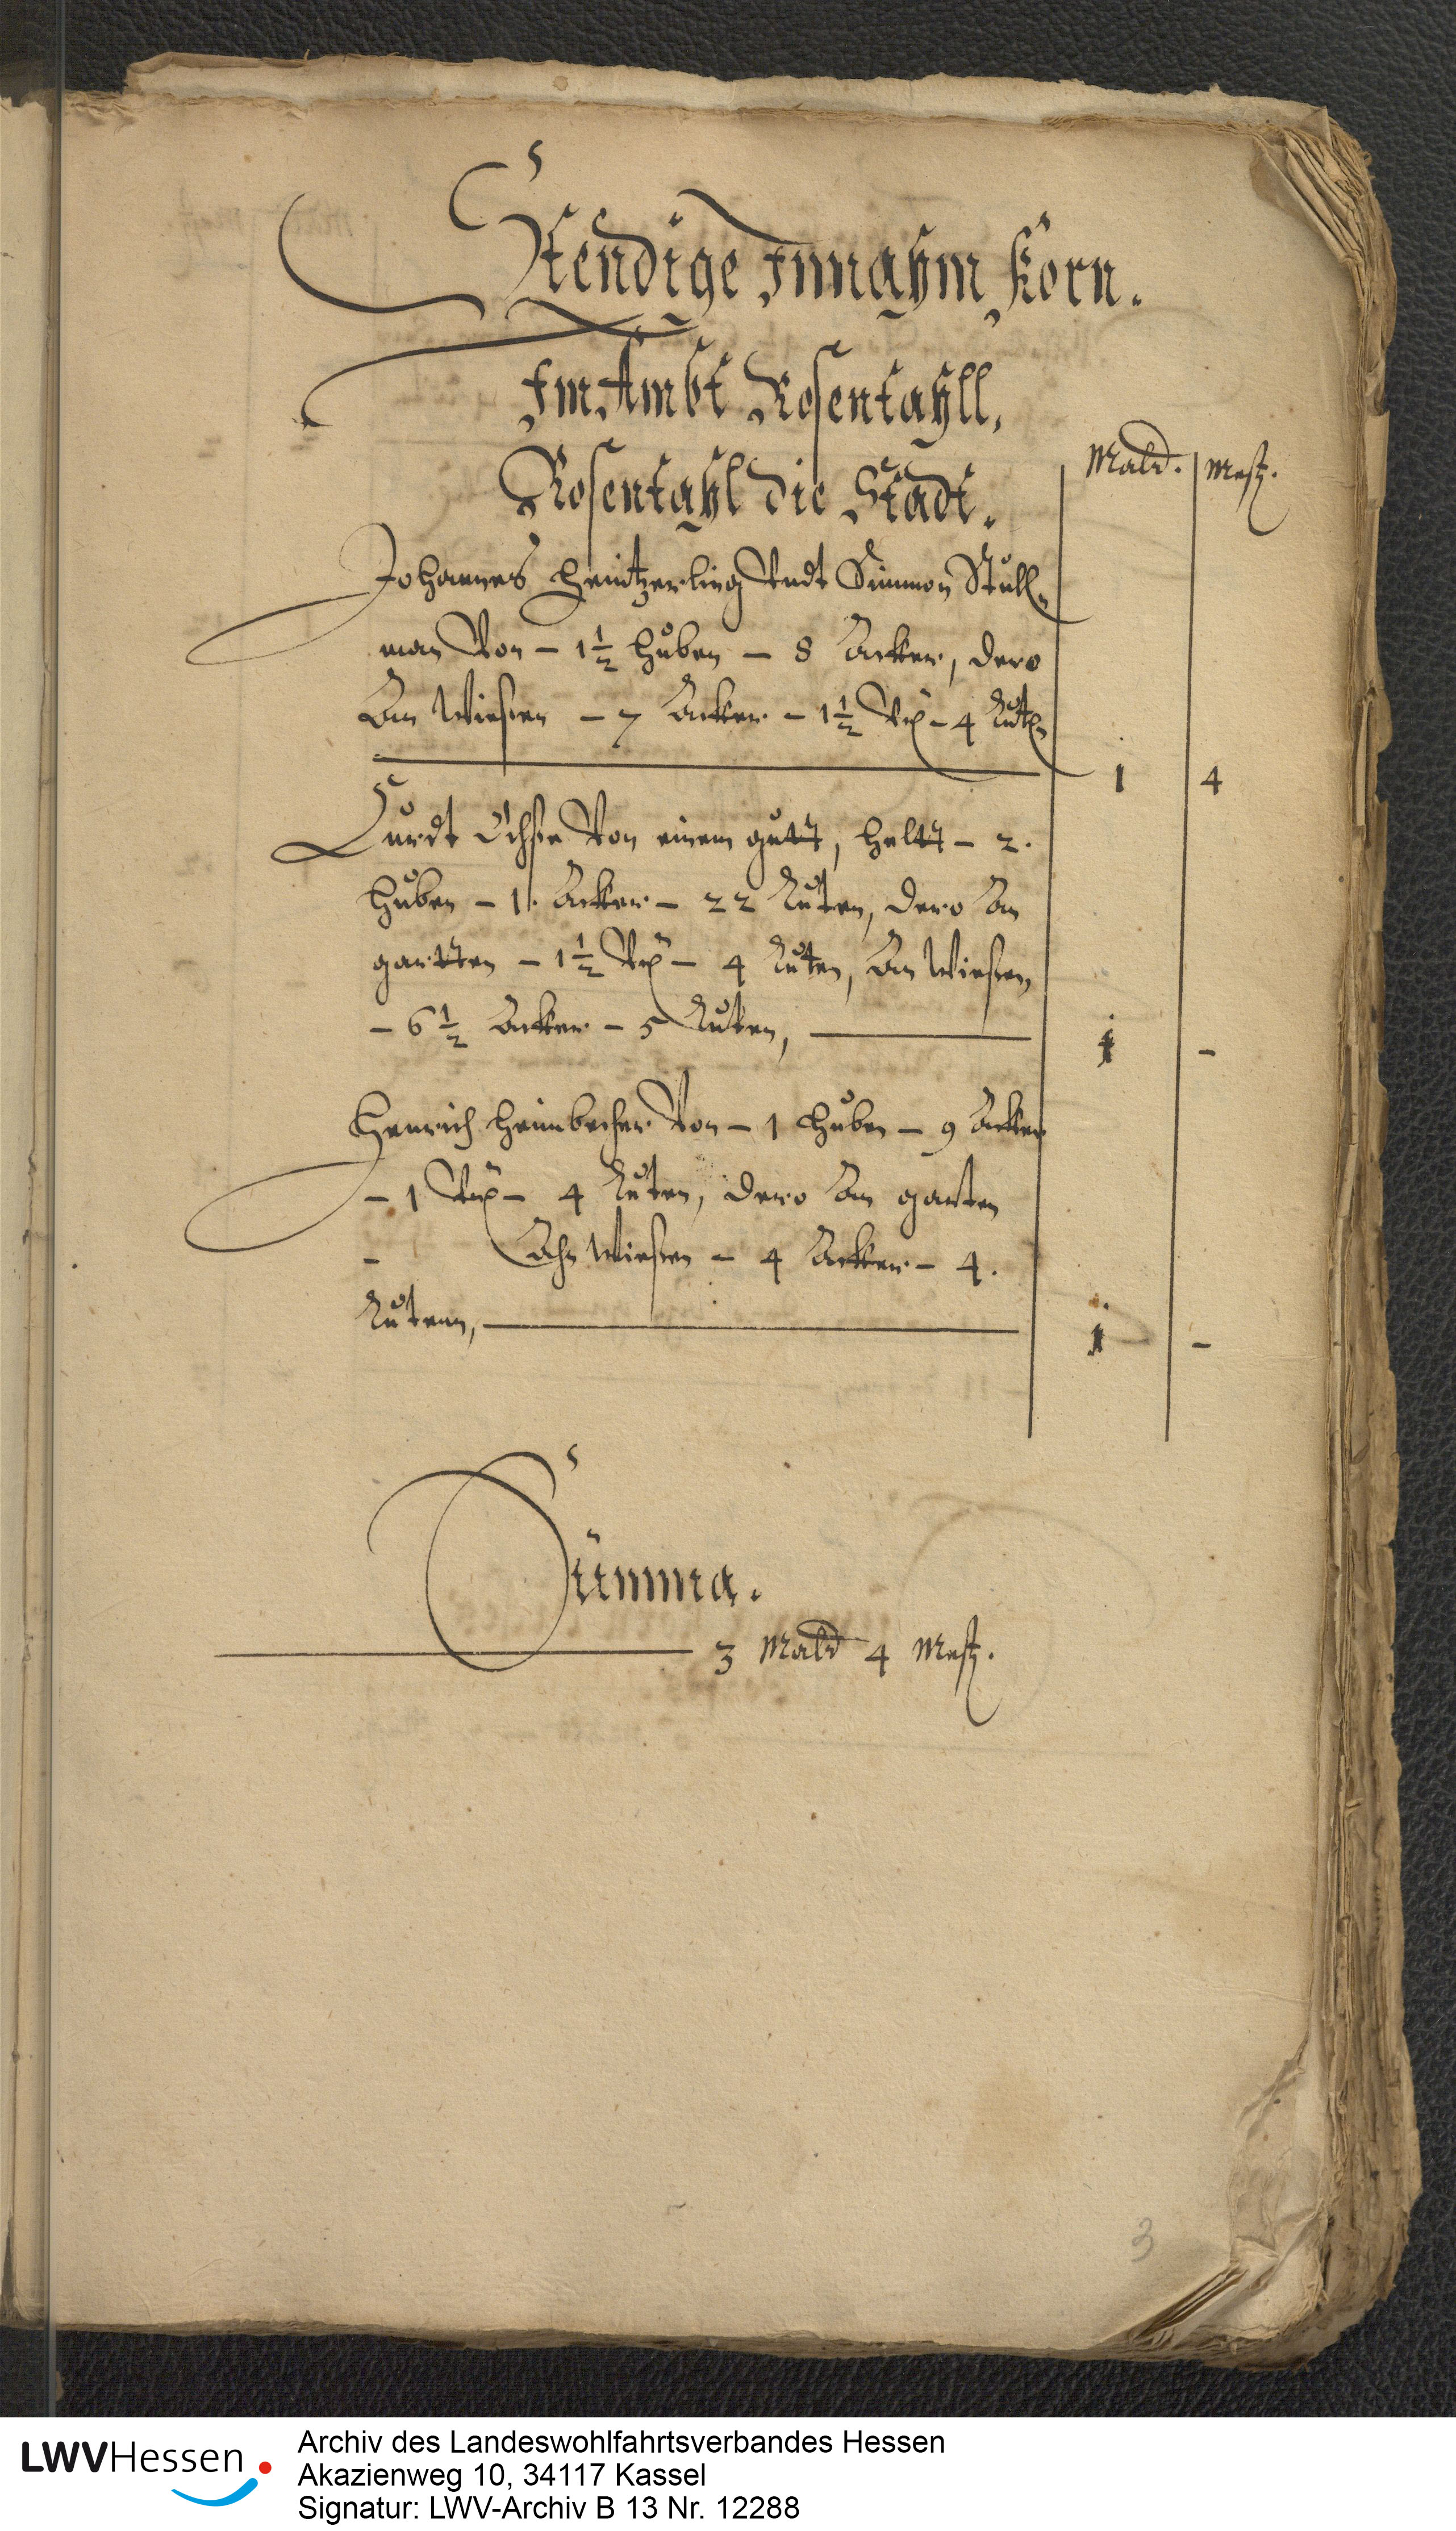 Stendige Innahm Korn.
Im Ambt Rosentahll,
Rosentahl die Stadt.
Mald. Mesz.
Johannes Heintzerling Vndt Simmon Stull-
man Von - 1½ Huben - 8 Acker, dero
An Wiessen - 7 Acker - 1½ - 4 Rut
1 4
Curdt Ochse Von einem gutt, heltt - 2.
huben - 11. Acker - 22 Ruten, dero An
gartten - 1½ - 4 Ruten, An Wiessen
- 6½ Acker - 5 Ruten,
1 -
Henrich Heimbecher Von - 1 Huben - 9 Acker
- 1 - 4 Ruten, dero An garten
- Ahn Wiessen - 4 Acker - 4.
Rutenn,
1 -
Summa.
3 Mald 4 Mesz.
3
LWVHessen
Archiv des Landeswohlfahrtsverbandes Hessen
Akazienweg 10, 34117 Kassel
Signatur: LWV-Archiv B 13 Nr. 12288